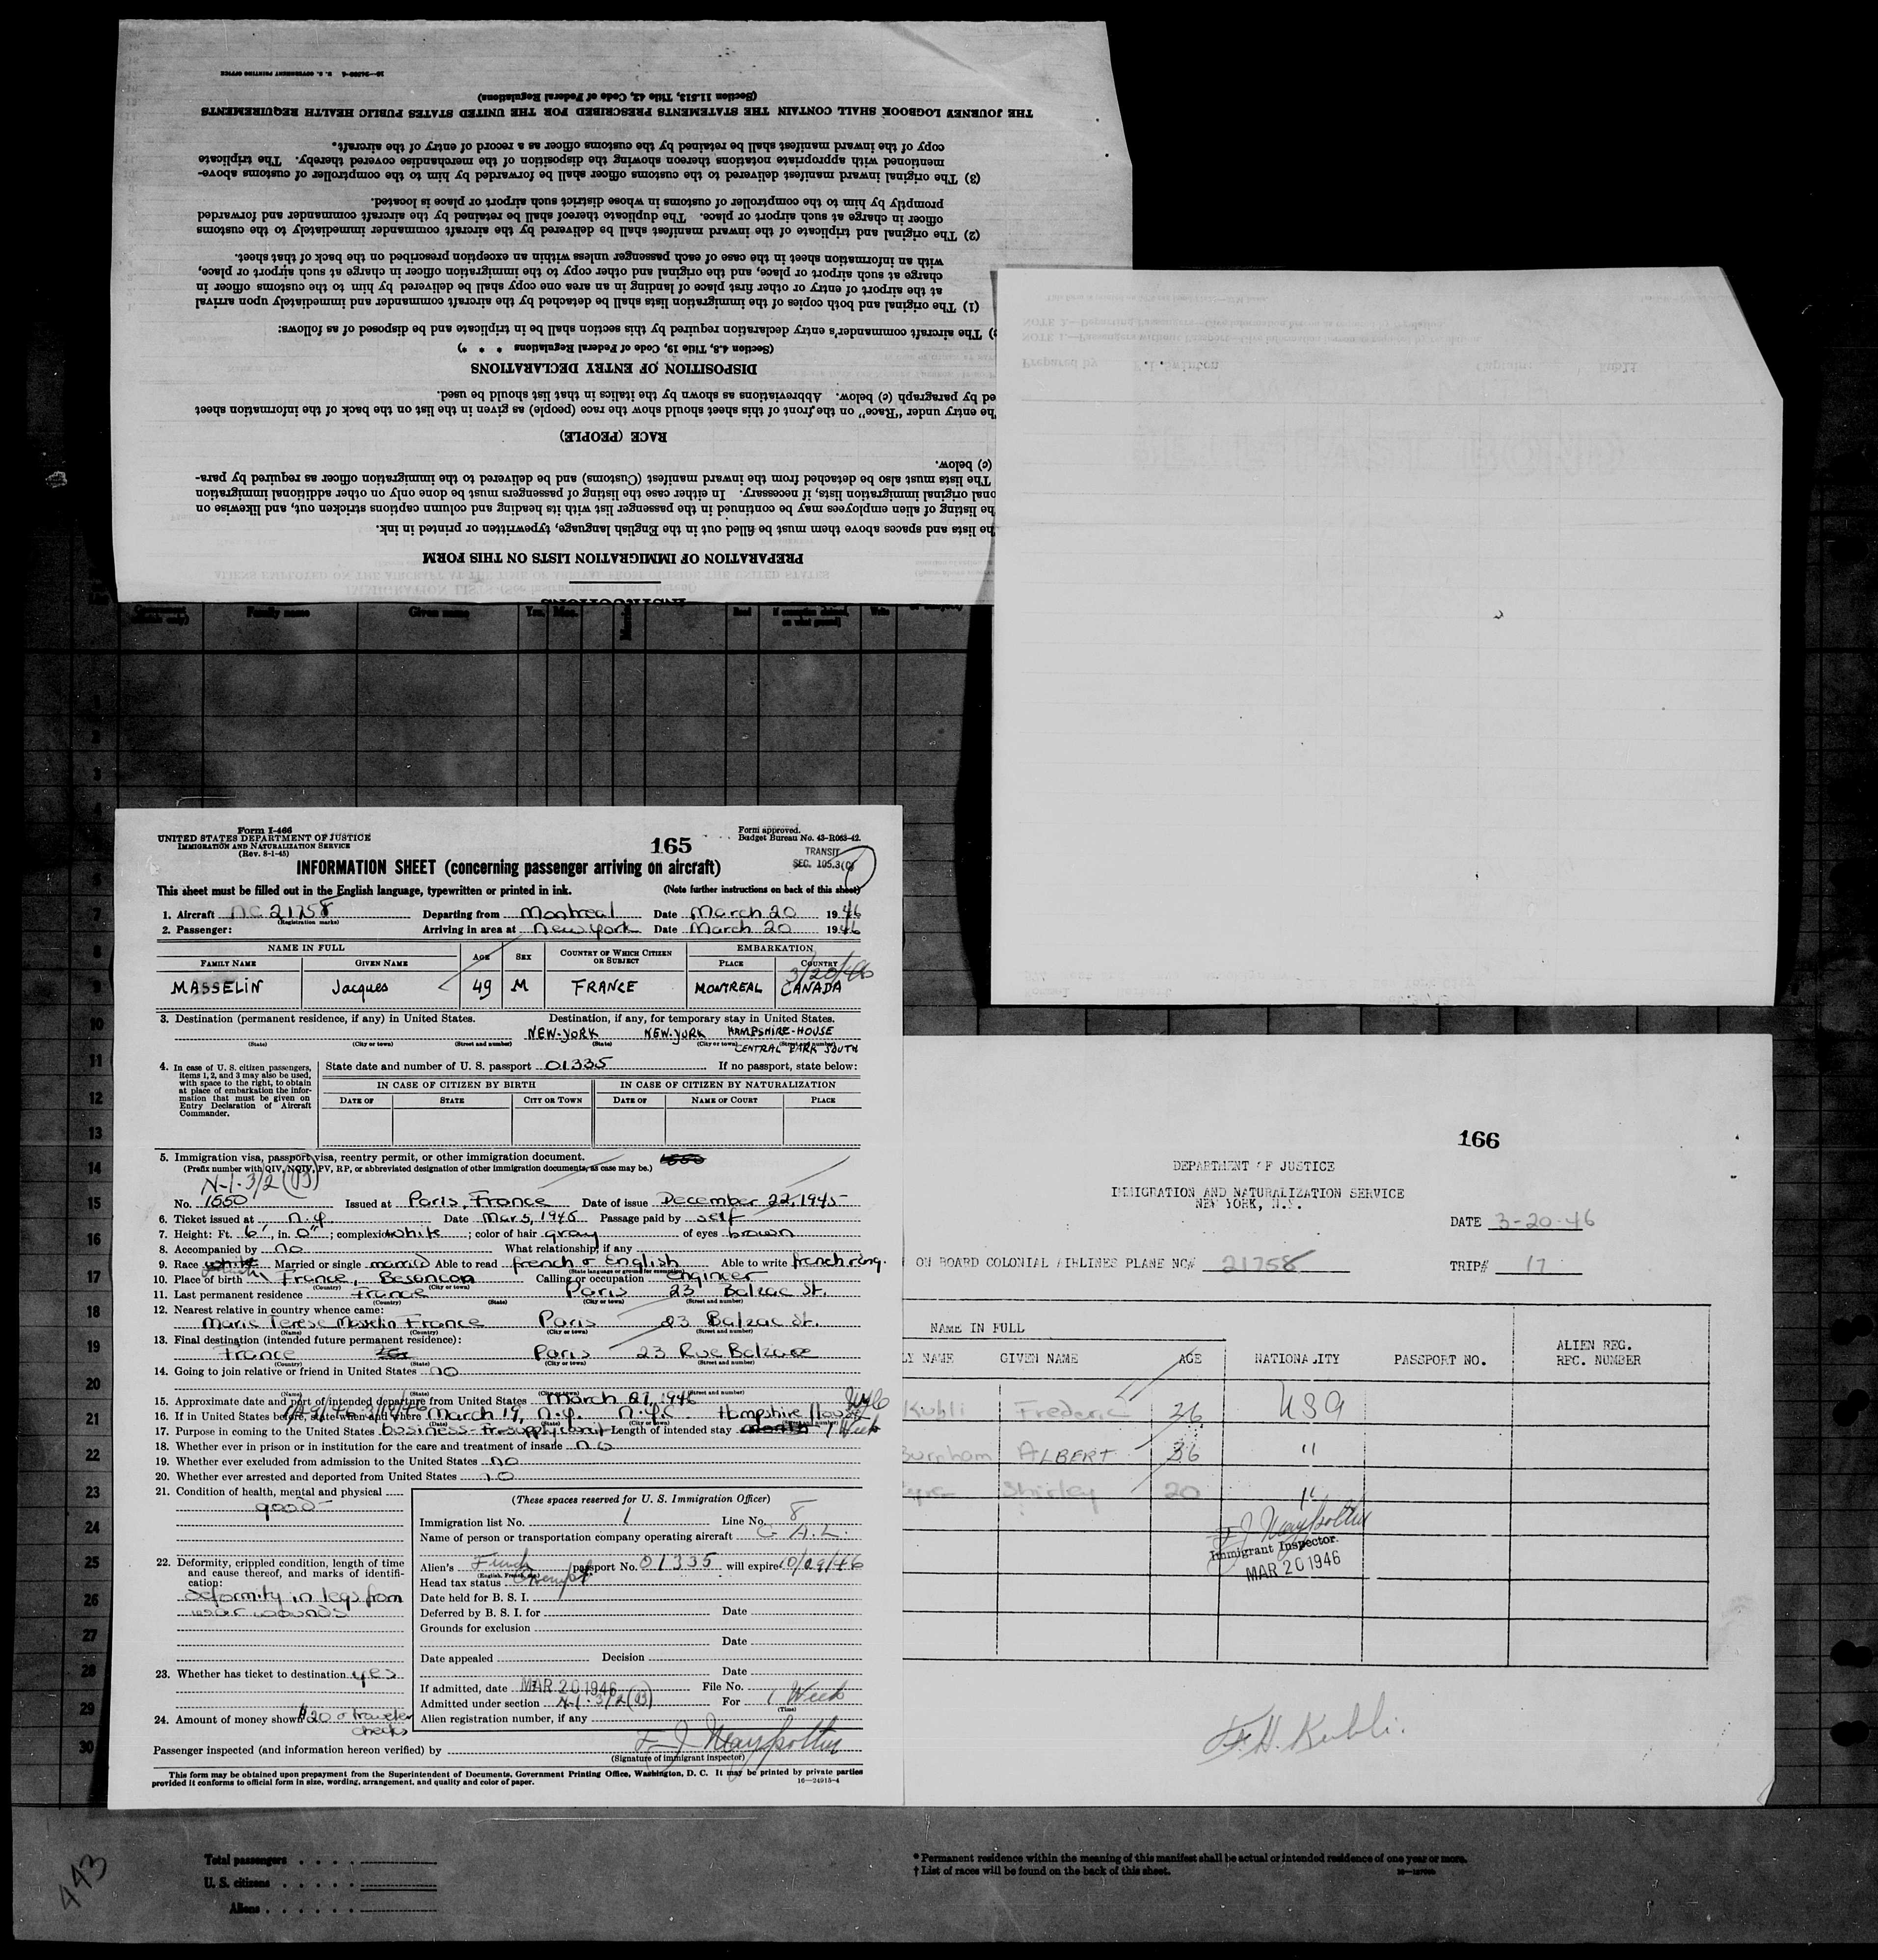 PREPARATION OF IMMIGRATION LISTS ON THIS FORM
he lists and spaces above them must be filled out in the English language, typewritten or printed in ink.
he listing of alien employees may be continued in the passenger list with its heading and column captions stricken out, and likewise on
onal original immigration lists, if necessary. In either case the listing of passengers must be done only on other additional immigration
The lists must also be detached from the inward manifest (Customs) and be delivered to the immigration officer as required by para-
(c) below.
RACE (PEOPLE)
he entry under "Race" on the front of this sheet should show the race (people) as given in the list on the back of the information sheet
ed by paragraph (c) below. Abbreviations as shown by the italics in that list should be used.
DISPOSITION OF ENTRY DECLARATIONS
(Section 4.8, Title 19, Code of Federal Regulations * * *)
) The aircraft commander's entry declaration required by this section shall be in triplicate and be disposed of as follows:
(1) The original and both copies of the immigration lists shall be detached by the aircraft commander and immediately upon arrival
at the airport of entry or other first place of landing in an area one copy shall be delivered by him to the customs officer in
charge at such airport or place, and the original and other copy to the immigration officer in charge at such airport or place,
with an information sheet in the case of each passenger unless within an exception prescribed on the back of that sheet.
(2) The original and triplicate of the inward manifest shall be delivered by the aircraft commander immediately to the customs
officer in charge at such airport or place. The duplicate thereof shall be retained by the aircraft commander and forwarded
promptly by him to the comptroller of customs in whose district such airport or place is located.
(3) The original inward manifest delivered to the customs officer shall be forwarded by him to the comptroller of customs above-
mentioned with appropriate notations thereon showing the disposition of the merchandise covered thereby. The triplicate
copy of the inward manifest shall be retained by the customs officer as a record of entry of the aircraft.
THE JOURNEY LOGBOOK SHALL CONTAIN THE STATEMENTS PRESCRIBED FOR THE UNITED STATES PUBLIC HEALTH REQUIREMENTS
(Section 11.513, Title 42, Code of Federal Regulations)
U. S. GOVERNMENT PRINTING OFFICE
Family name Given name Yrs. Mos. Read
Form I-466
UNITED STATES DEPARTMENT OF JUSTICE
IMMIGRATION AND NATURALIZATION SERVICE
(Rev. 8-1-45)
165
Form approved.
Budget Bureau No. 43-R063-42.
TRANSIT
SEC. 105.3(c)
INFORMATION SHEET (concerning passenger arriving on aircraft)
This sheet must be filled out in the English language, typewritten or printed in ink. (Note further instructions on back of this sheet)
1. Aircraft NC 21758 Departing from Montreal Date March 20 1946
(Registration marks)
2. Passenger: Arriving in area at New York Date March 20 1946
NAME IN FULL AGE SEX COUNTRY OF WHICH CITIZEN OR SUBJECT EMBARKATION
FAMILY NAME GIVEN NAME PLACE COUNTRY
3/20/46
MASSELIN Jacques 49 M FRANCE MONTREAL CANADA
3. Destination (permanent residence, if any) in United States. Destination, if any, for temporary stay in United States.
NEW-YORK NEW-YORK HAMPSHIRE-HOUSE
(State) (City or town) (Street and number) (State) (City or town) (Street and number)
CENTRAL PARK SOUTH
4. In case of U. S. citizen passengers, items 1, 2, and 3 may also be used, with space to the right, to obtain at place of embarkation the information that must be given on Entry Declaration of Aircraft Commander.
State date and number of U. S. passport 01335 If no passport, state below:
IN CASE OF CITIZEN BY BIRTH IN CASE OF CITIZEN BY NATURALIZATION
DATE OF STATE CITY OR TOWN DATE OF NAME OF COURT PLACE
5. Immigration visa, passport visa, reentry permit, or other immigration document.
(Prefix number with QIV, NQIV, PV, RP, or abbreviated designation of other immigration documents, as case may be.)
N-1-3/2 (93)
No. 1550 Issued at Paris, France Date of issue December 22, 1945
6. Ticket issued at N.Y. Date Mar 5, 1946 Passage paid by self
7. Height: Ft. 6', in. 0"; complexion white; color of hair gray of eyes brown
8. Accompanied by no What relationship, if any
9. Race Married or single married Able to read french & English Able to write french & eng.
(State language or ground for exemption)
10. Place of birth France, Besancon Calling or occupation engineer
(Country) (City or town)
11. Last permanent residence France Paris 23 Balzac St.
(Country) (State) (City or town) (Street and number)
12. Nearest relative in country whence came:
Marie Terese Masselin France Paris 23 Balzac St.
(Name) (Country) (City or town) (Street and number)
13. Final destination (intended future permanent residence):
France Paris 23 Rue Balzac
(Country) (State) (City or town) (Street and number)
14. Going to join relative or friend in United States no
(Name) (State) (City or town) (Street and number)
15. Approximate date and port of intended departure from United States March 27, 1946
16. If in United States before, state when and where March 19, N.Y. N.Y.C. Hampshire House
(Date) (State) (City or town)
17. Purpose in coming to the United States business Length of intended stay 1 Week
18. Whether ever in prison or in institution for the care and treatment of insane no
19. Whether ever excluded from admission to the United States no
20. Whether ever arrested and deported from United States no
21. Condition of health, mental and physical
good
22. Deformity, crippled condition, length of time and cause thereof, and marks of identification:
deformity in legs from
war wounds
23. Whether has ticket to destination yes
24. Amount of money shown $20 & traveler
checks
(These spaces reserved for U. S. Immigration Officer)
Immigration list No. 1 Line No. 8
Name of person or transportation company operating aircraft C. A. L.
Alien's French passport No. 01335 will expire 10/29/46
(English, French, etc.)
Head tax status Exempt
Date held for B. S. I.
Deferred by B. S. I. for Date
Grounds for exclusion
Date
Date appealed Decision
Date
If admitted, date MAR 20 1946 File No.
Admitted under section N-1-3/2(93) For 1 Week
(Time)
Alien registration number, if any
Passenger inspected (and information hereon verified) by
(Signature of immigrant inspector)
This form may be obtained upon prepayment from the Superintendent of Documents, Government Printing Office, Washington, D. C. It may be printed by private parties
provided it conforms to official form in size, wording, arrangement, and quality and color of paper. 16—24915-4
166
DEPARTMENT OF JUSTICE
IMMIGRATION AND NATURALIZATION SERVICE
NEW YORK, N.Y.
DATE 3-20-46
ON BOARD COLONIAL AIRLINES PLANE NO# 21758 TRIP# 17
NAME IN FULL
LY NAME GIVEN NAME AGE NATIONALITY PASSPORT NO. ALIEN REG. REC. NUMBER
Kubli Frederic 26 USA
Burnham ALBERT 36 "
Shirley 20 "
Immigrant Inspector.
MAR 20 1946
F. H. Kubli.
7
8
9
10
11
12
13
14
15
16
17
18
19
20
21
22
23
24
25
26
27
28
29
30
Total passengers
U. S. citizens
Aliens
* Permanent residence within the meaning of this manifest shall be actual or intended residence of one year or more.
† List of races will be found on the back of this sheet.
443